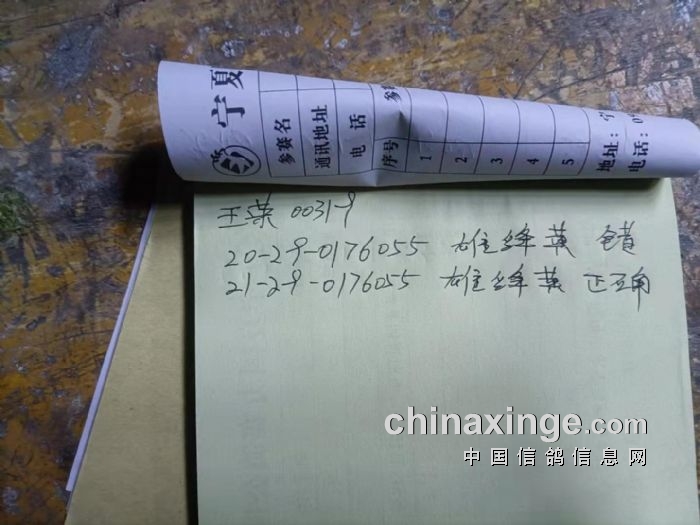 宁夏
参赛名
通讯地址
电 话
序号
1
2
3
4
5
地址:宁
电话:0
王荣 0031-9
20-29-0176055 雄绛黄 错
21-29-0176055 雄绛黄 正确
chinaxinge.com
中国信鸽信息网